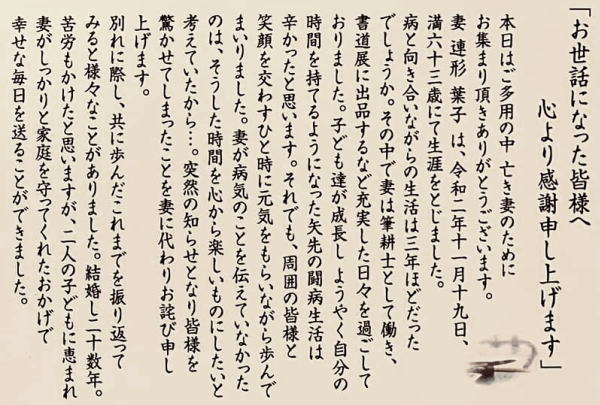 「お世話になった皆様へ
心より感謝申し上げます」
本日はご多用の中 亡き妻のために
お集まり頂きありがとうございます。
妻 連形 葉子 は、令和二年十一月十九日、
満六十三歳にて生涯をとじました。
病と向き合いながらの生活は三年ほどだった
でしょうか。その中で妻は筆耕士として働き、
書道展に出品するなど充実した日々を過ごして
おりました。子ども達が成長し ようやく自分の
時間を持てるようになった矢先の闘病生活は
辛かったと思います。それでも、周囲の皆様と
笑顔を交わすひと時に元気をもらいながら歩んで
まいりました。妻が病気のことを伝えていなかった
のは、そうした時間を心から楽しいものにしたいと
考えていたから…。突然の知らせとなり皆様を
驚かせてしまったことを妻に代わりお詫び申し
上げます。
別れに際し、共に歩んだこれまでを振り返って
みると様々なことがありました。結婚し二十数年。
苦労もかけたと思いますが、二人の子どもに恵まれ
妻がしっかりと家庭を守ってくれたおかげで
幸せな毎日を送ることができました。